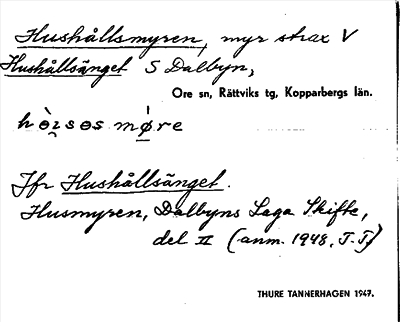 Hushållsmyren, myr strax V
Hushållsänget S Dalbyn,
Ore sn, Rättviks tg, Kopparbergs län.
Jfr Hushållsänget.
Husmyren, Dalbyns Laga Skifte,
del II (anm. 1948, T.T)
THURE TANNERHAGEN 1947.